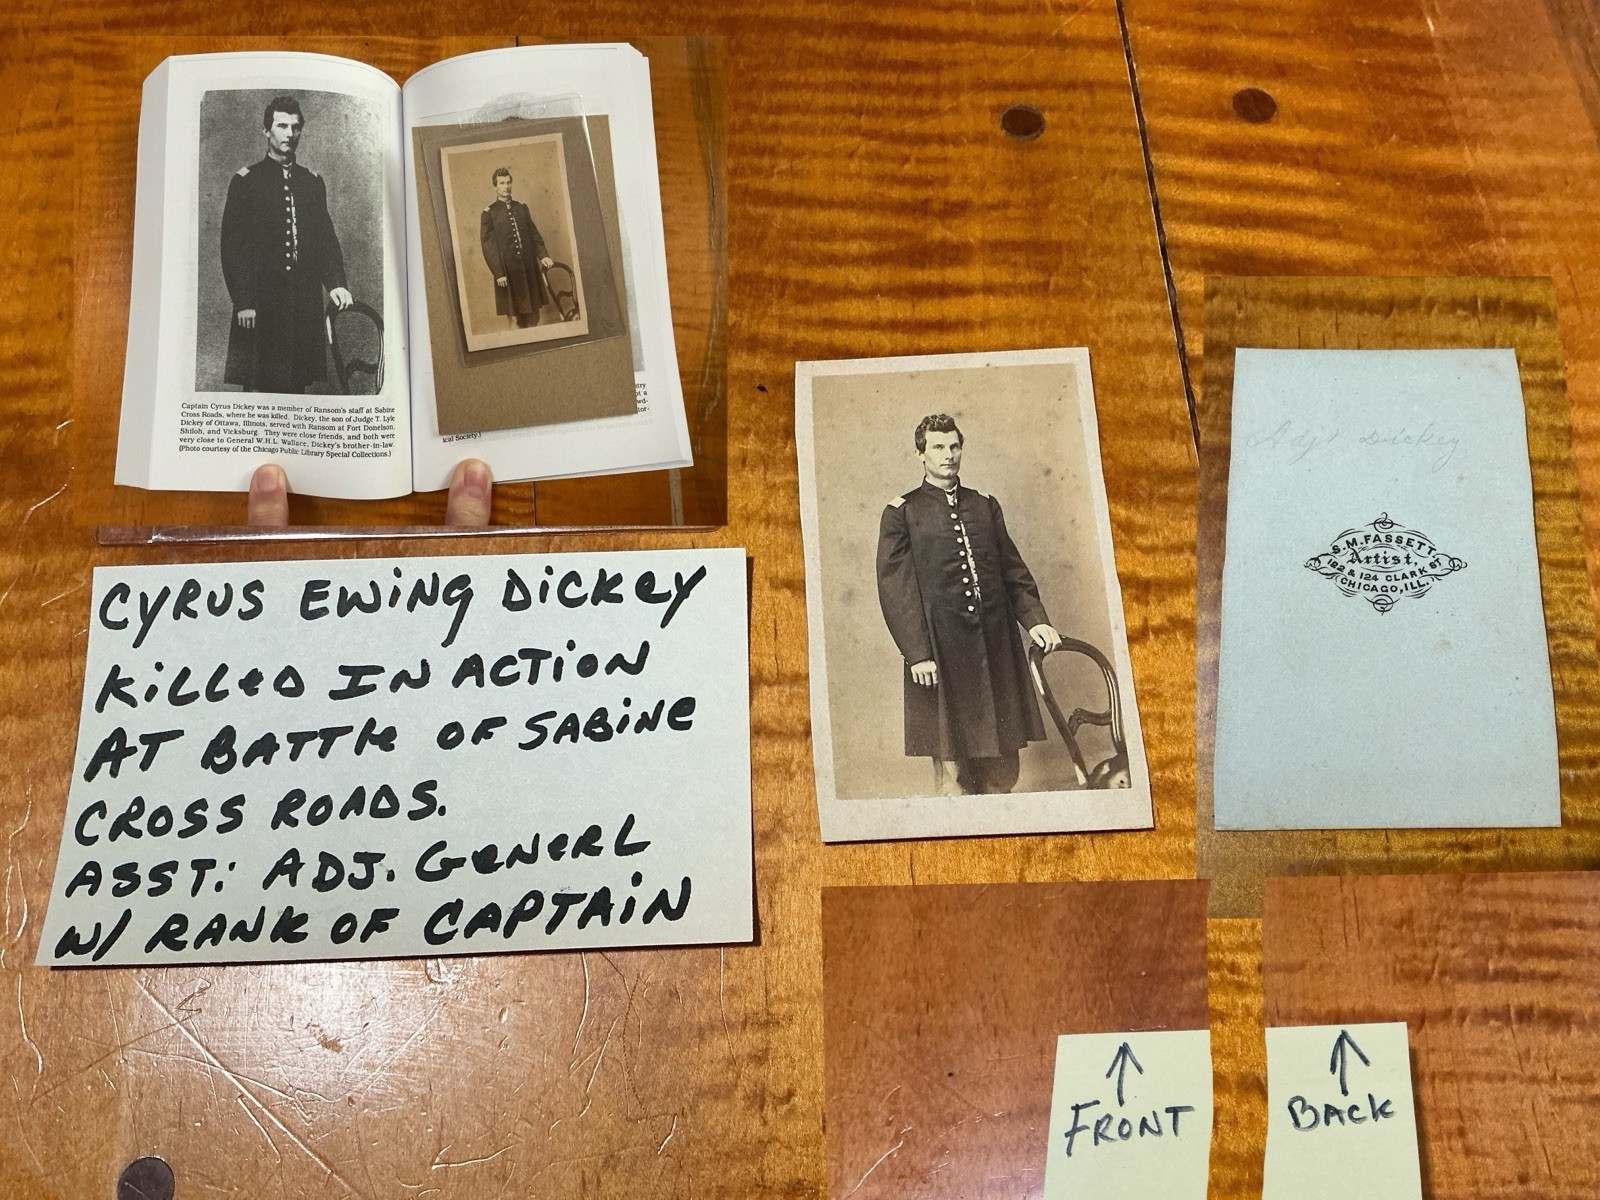 Captain Cyrus Dickey was a member of Ransom's staff at Sabine
Cross Roads, where he was killed. Dickey, the son of Judge T. Lyle
Dickey of Ottawa, Illinois, served with Ransom at Fort Donelson,
Shiloh, and Vicksburg. They were close friends, and both were
very close to General W.H.L. Wallace, Dickey's brother-in-law.
(Photo courtesy of the Chicago Public Library Special Collections.)
ical Society.)
CYRUS EWING DICKEY
KILLED IN ACTION
AT BATTLE OF SABINE
CROSS ROADS.
ASST: ADJ. GENERL
W/ RANK OF CAPTAIN
Adjt Dickey
S.M. FASSETT,
Artist,
122 & 124 CLARK ST
CHICAGO, ILL.
FRONT
BACK